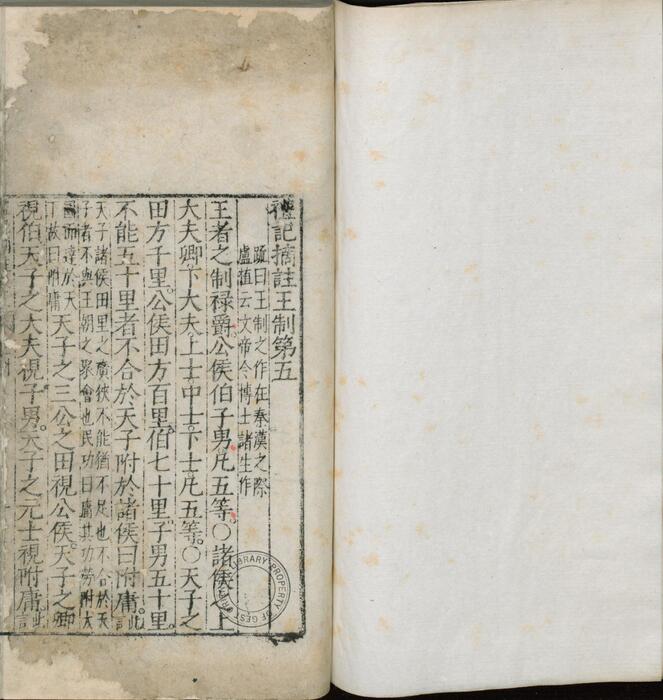 禮記摘註王制第五
疏曰王制之作在秦漢之際
盧植云文帝令博士諸生作
王者之制祿爵公侯伯子男凡五等〇諸侯之上
大夫卿下大夫上士中士下士凡五等〇天子之
田方千里公侯田方百里伯七十里子男五十里
不能五十里者不合於天子附於諸侯曰附庸此
天子諸侯田里之廣狹不能猶不足也不合於天
子者不與王朝之聚會也民功曰庸其功勞附大
國而達於天
故曰附庸天子之三公之田視公侯天子之卿
視伯天子之大夫視子男天子之元士視附庸此
LIBRARY PROPERTY OF GEST